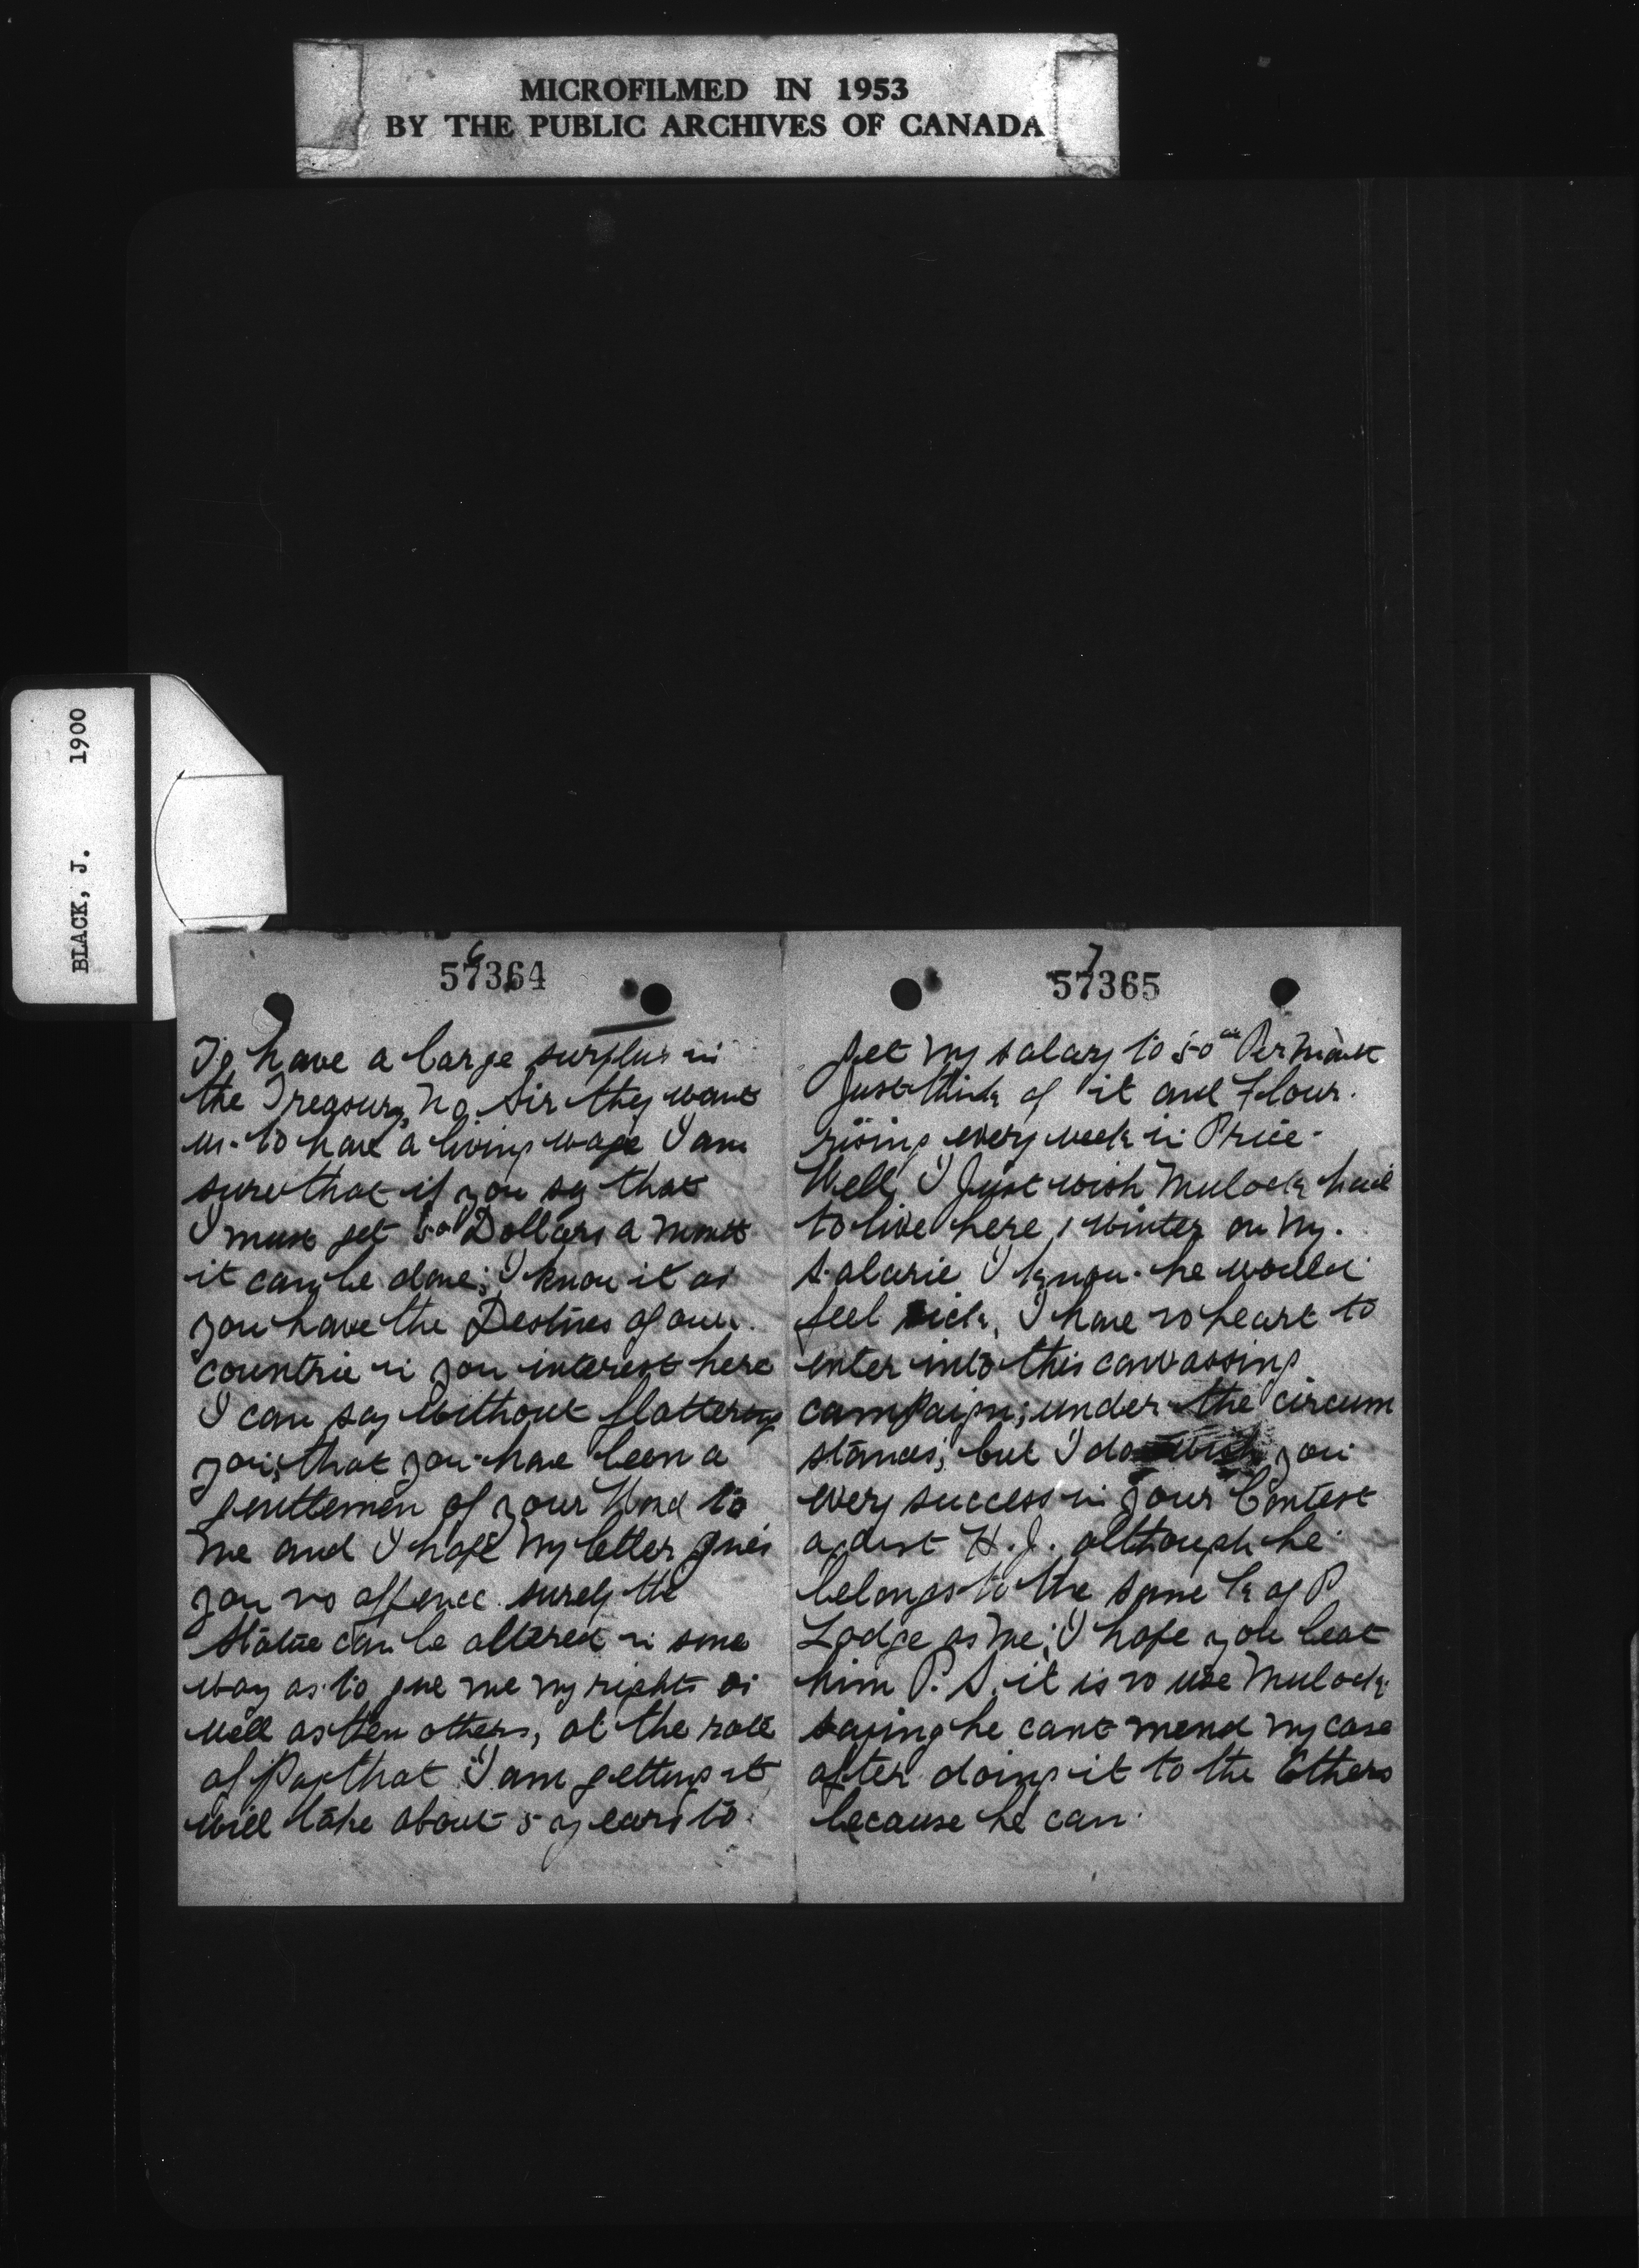 MICROFILMED IN 1953
BY THE PUBLIC ARCHIVES OF CANADA
BLACK, J. 1900
6
57364
To have a large surplus in
the Treasury, no Sir they want
us to have a living wage I am
sure that if you say that
I must get 50 Dollars a month
it can be done; I know it as
you have the Destines of our
countrie in you interest here
I can say without flattering
you, that you have been a
gentlemen of your Word to
me and I hope my letter gives
you no offence surely the
Statue can be altered in some
way as to give me my rights as
well as then others, at the rate
of Pay that I am getting it
will take about 5 years to
7
57365
get my salary to 50 Per month
Just think of it and flour
rising every week in Price
Well I Just wish Mulock had
to live here 1 winter on my
salarie I know he would
feel sick, I have no heart to
enter into this canvassing
campaign; under the circum
stances; but I do wish you
every success in your Contest
agust H. J. although he
belongs to the same K of P
Lodge as me; I hope you beat
him P. S. it is no use Mulock
saying he cant mend my case
after doing it to the Others
because he can